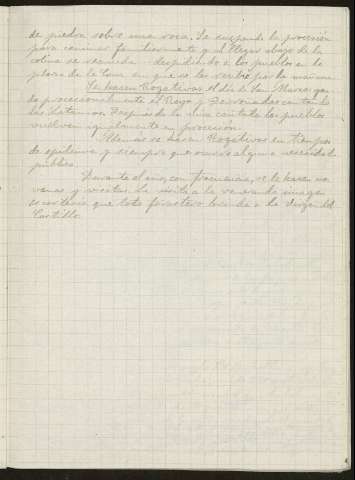 de piedra sobre una roca. Se suspende la procesión
para caminar familiarmente y al llegar abajo de la
colina se reanuda despidiendo a los pueblos en la
plaza de la Cruz en que se les recibió por la mañana.
Se hacen Rogativas. El día de San Marcos
do procesionalmente el Rezo y Fernandez cantan las
las Letanías. Después de la misa cantada los pueblos
vuelven igualmente en procesión.
Además se hacen Rogativas en tiempos
de epidemia y siempre que ocurra alguna necesidad
pública.
Durante el año, con frecuencia, se le hacen no-
venas y visitas. La visita a la veneranda imagen
es cortesía que todo forastero brinda a la Virgen del
Castillo.